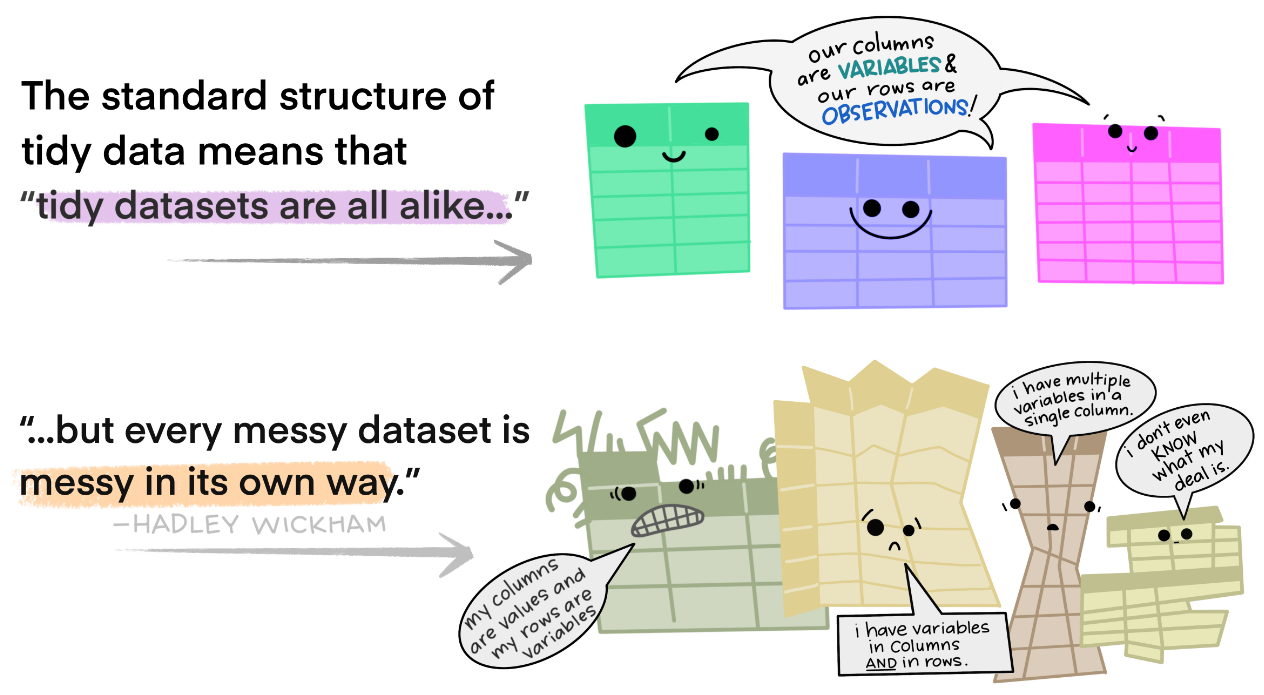 The standard structure of
tidy data means that
“tidy datasets are all alike...”
our columns
are VARIABLES &
our rows are
OBSERVATIONS!
“...but every messy dataset is
messy in its own way.”
–HADLEY WICKHAM
my columns
are values and
my rows are
variables
i have variables
in columns
AND in rows.
i have multiple
variables in a
single column.
i don't even
KNOW
what my
deal is.